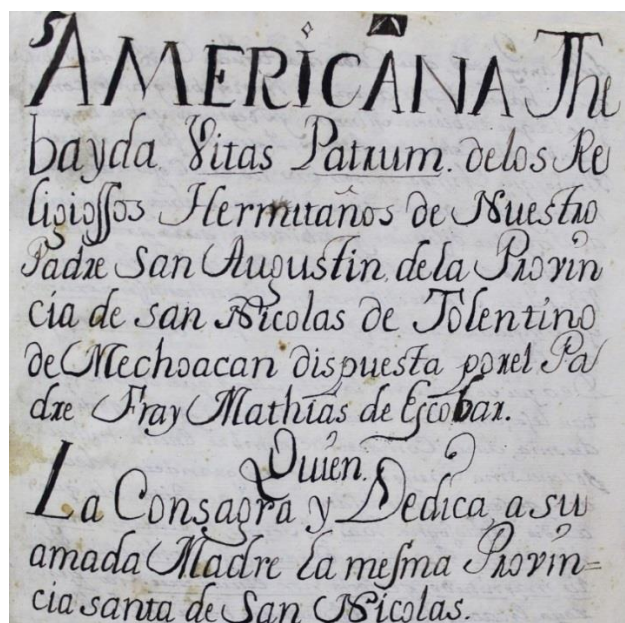 AMERICANA The
bayda Vitas Patrum. delos Re
ligiossos Hermitaños de Nuestro
Padre San Augustin, dela Provin
cia de san Nicolas de Tolentino
de Mechoacan dispuesta porel Pa
dre Fray Mathias de Escobar.
Quien.
La Consagra y Dedica, a su
amada Madre la mesma Provin=
cia santa de San Nicolas.